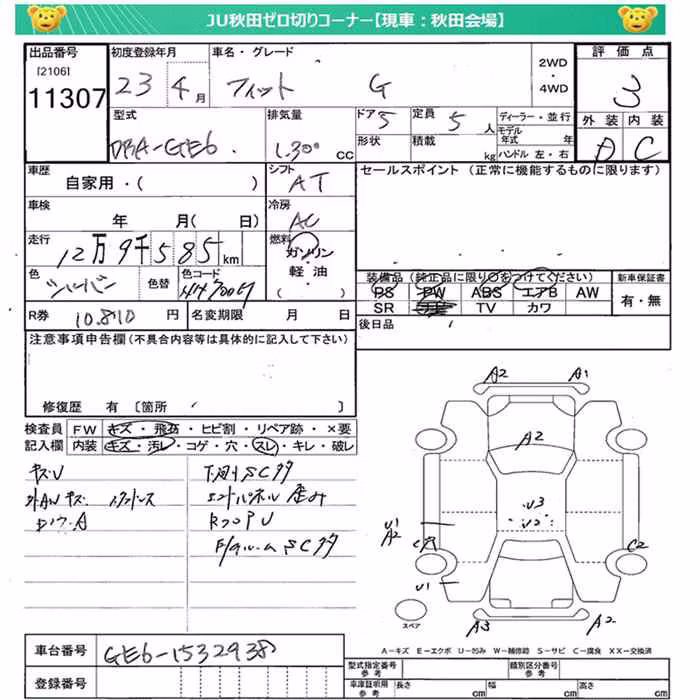 JU秋田ゼロ切りコーナー【現車：秋田会場】
出品番号 初度登録年月 車名・グレード 2WD・4WD 評価点
[2106]
11307 23 4月 フィット G 3
型式 排気量 ドア 5 定員 5人 ディーラー・並行 外装 内装
DBA-GE6 1.30 cc 形状 積載 kg モデル年式 年 ハンドル 左・右 D C
車歴 シフト セールスポイント（正常に機能するものに限ります）
自家用・（ ） AT
車検 冷房
年 月（ 日） AC
走行 燃料
12万9千585km ガソリン
軽油
（ ）
色 色替 色コード 装備品（純正品に限り○をつけてください） 新車保証書
シルバー PS PW ABS エアB AW 有・無
SR TV カワ
R券 10.810 円 名変期限 月 日 後日品
注意事項申告欄（不具合内容等は具体的に記入して下さい）
修復歴 有 〔箇所 〕
検査員 FW キズ・飛石・ヒビ割・リペア跡・×要
記入欄 内装 キズ・汚レ・コゲ・穴・スレ・キレ・破レ
キズU 下廻りSCサ
外AWキズ
エンドパネル歪み
RフロアU
FルームSCサ
A2 A1
A2
U3
U2
U1
A2
C2
U1
A3 A2
スペア
A－キズ E－エクボ U－凹み W－補修跡 S－サビ C－腐食 XX－交換済
車台番号 GE6-1532938
登録番号
型式指定番号 参考 類別区分番号 参考
車庫証明用 参考 長さ cm 幅 cm 高さ cm